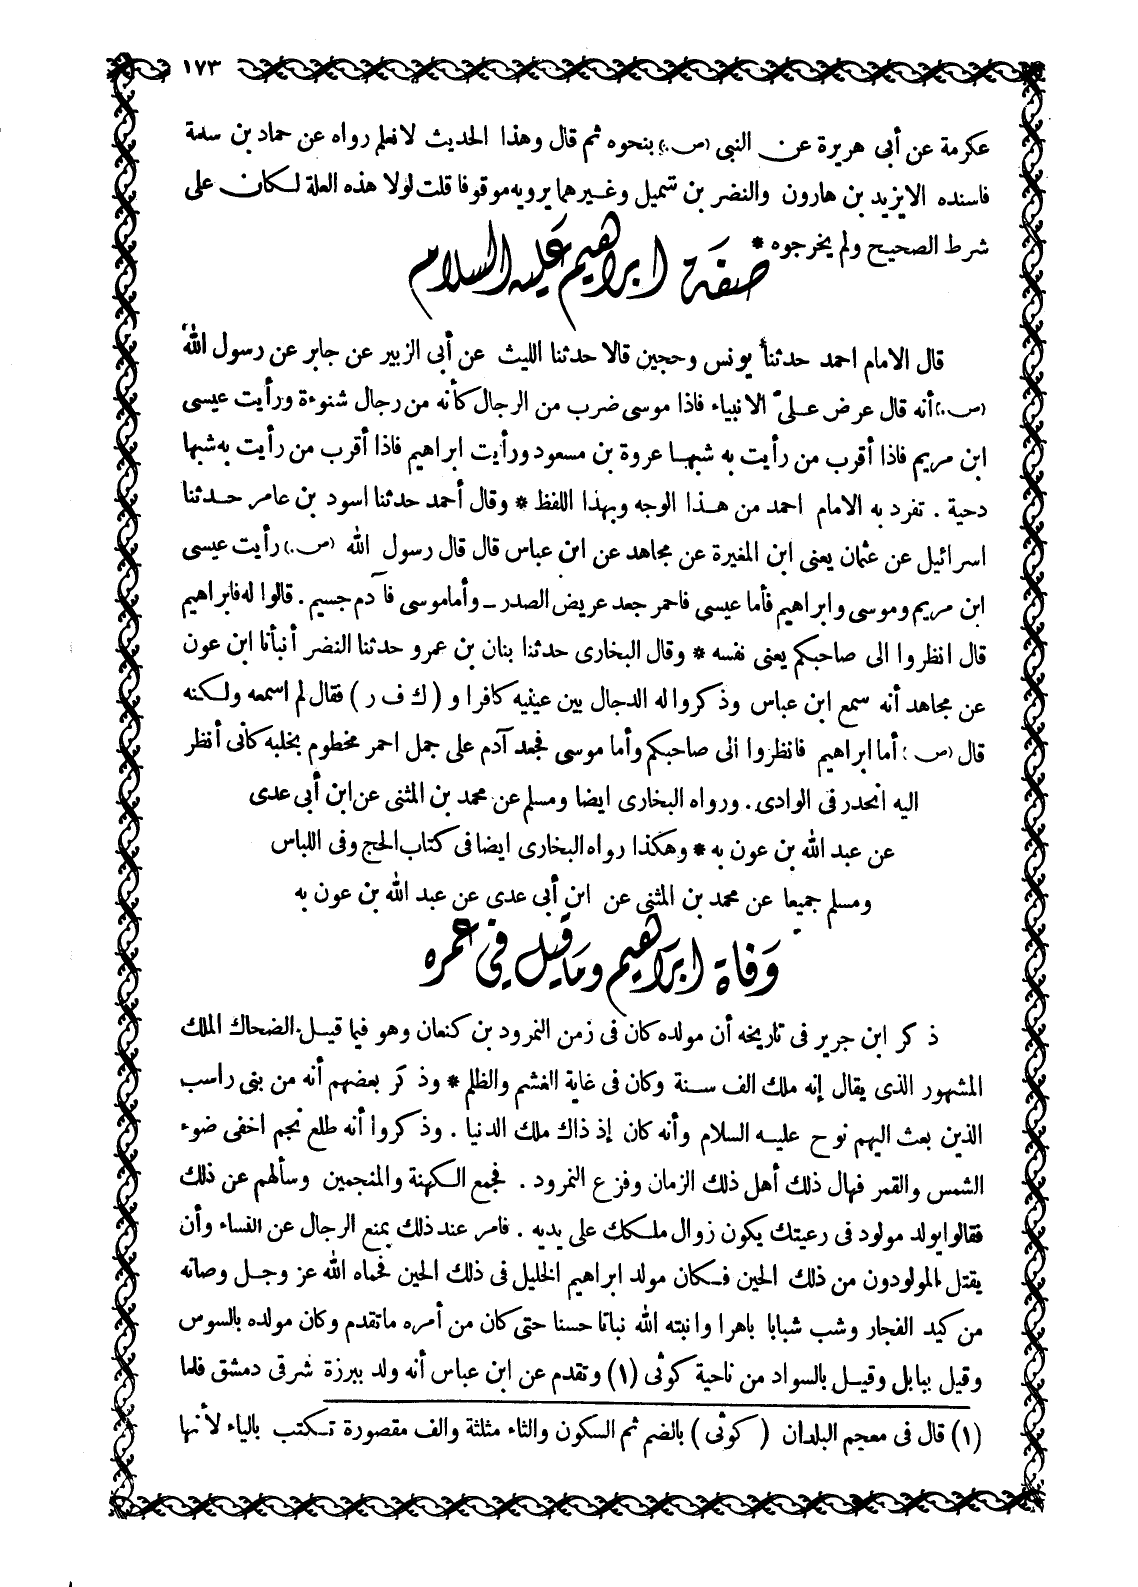 ١٧٣
عكرمة عن أبى هريرة عن النبى (ص.) بنحوه ثم قال وهذا الحديث لا نعلم رواه عن حماد بن سلمة
فاسنده الا يزيد بن هارون والنضر بن شميل وغيرهما يرويه موقوفا قلت لولا هذه العلة لكان على
شرط الصحيح ولم يخرجوه *
صفة ابراهيم عليه السلام
قال الامام احمد حدثنا يونس وحجين قالا حدثنا الليث عن أبى الزبير عن جابر عن رسول الله
(ص.) أنه قال عرض علىّ الانبياء فاذا موسى ضرب من الرجال كأنه من رجال شنوءة ورأيت عيسى
ابن مريم فاذا أقرب من رأيت به شبها عروة بن مسعود ورأيت ابراهيم فاذا أقرب من رأيت به شبها
دحية . تفرد به الامام احمد من هذا الوجه وبهذا اللفظ * وقال أحمد حدثنا اسود بن عامر حدثنا
اسرائيل عن عثمان يعنى ابن المغيرة عن مجاهد عن ابن عباس قال قال رسول الله (ص.) رأيت عيسى
ابن مريم وموسى وابراهيم فأما عيسى فاحمر جعد عريض الصدر ـ وأما موسى فآدم جسيم . قالوا له فابراهيم
قال انظروا الى صاحبكم يعنى نفسه * وقال البخارى حدثنا بنان بن عمرو حدثنا النضر أنبأنا ابن عون
عن مجاهد أنه سمع ابن عباس وذكروا له الدجال بين عينيه كافرا و ( ك ف ر ) فقال لم اسمعه ولكنه
قال (ص.) أما ابراهيم فانظروا الى صاحبكم وأما موسى فجعد آدم على جمل احمر مخطوم بخلبه كأنى أنظر
اليه انحدر فى الوادى . ورواه البخارى ايضا ومسلم عن محمد بن المثنى عن ابن أبى عدى
عن عبد الله بن عون به * وهكذا رواه البخارى ايضا فى كتاب الحج وفى اللباس
ومسلم جميعا عن محمد بن المثنى عن ابن أبى عدى عن عبد الله بن عون به
وفاة ابراهيم وما قيل فى عمره
ذكر ابن جرير فى تاريخه أن مولده كان فى زمن النمرود بن كنعان وهو فيما قيل الضحاك الملك
المشهور الذى يقال إنه ملك الف سنة وكان فى غاية الغشم والظلم * وذكر بعضهم أنه من بنى راسب
الذين بعث اليهم نوح عليه السلام وأنه كان إذ ذاك ملك الدنيا . وذكروا أنه طلع نجم اخفى ضوء
الشمس والقمر فهال ذلك أهل ذلك الزمان وفزع النمرود . فجمع الكهنة والمنجمين وسألهم عن ذلك
فقالوا يولد مولود فى رعيتك يكون زوال ملكك على يديه . فامر عند ذلك بمنع الرجال عن النساء وأن
يقتل المولودون من ذلك الحين فكان مولد ابراهيم الخليل فى ذلك الحين فحماه الله عز وجل وصانه
من كيد الفجار وشب شبابا باهرا وانبته الله نباتا حسنا حتى كان من أمره ما تقدم وكان مولده بالسوس
وقيل ببابل وقيل بالسواد من ناحية كوثى (١) وتقدم عن ابن عباس أنه ولد ببرزة شرقى دمشق فلما
(١) قال فى معجم البلدان ( كوثى ) بالضم ثم السكون والثاء مثلثة والف مقصورة تكتب بالياء لأنها